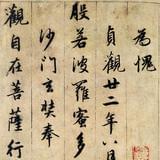 為愧
貞觀廿二年八月
般若波羅蜜多
沙門玄奘奉
觀自在菩薩行